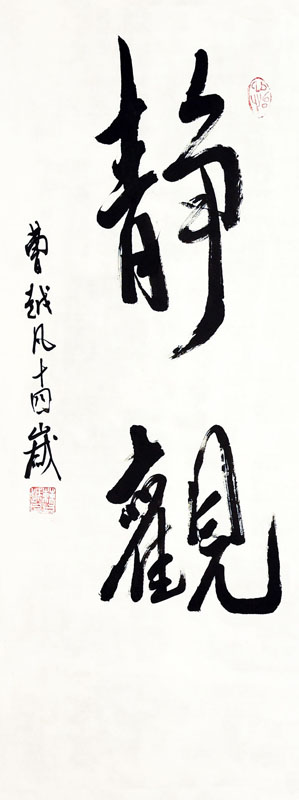 靜觀
曹越凡十四歲